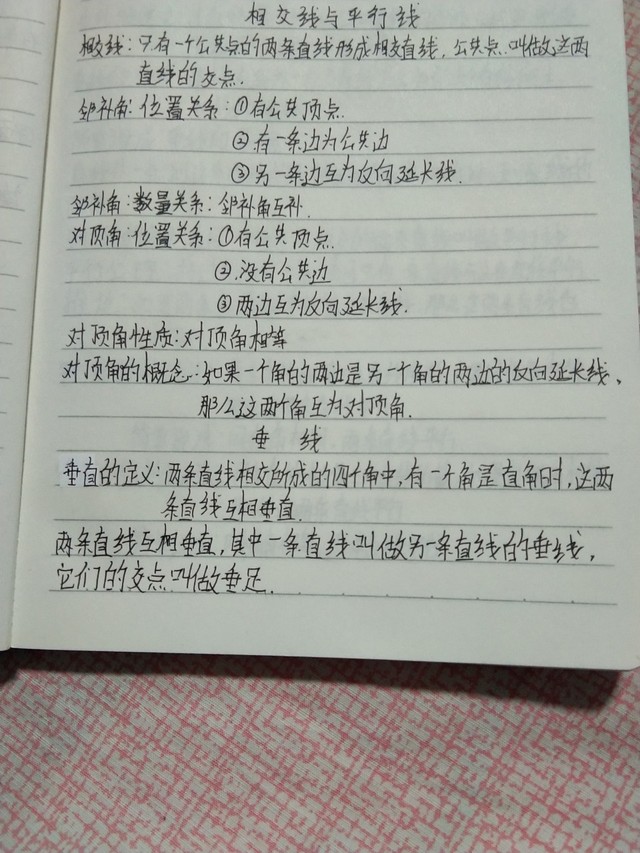 相交线与平行线
相交线:只有一个公共点的两条直线形成相交直线,公共点叫做这两
直线的交点.
邻补角:位置关系:①有公共顶点.
②有一条边为公共边
③另一条边互为反向延长线.
邻补角:数量关系:邻补角互补.
对顶角:位置关系:①有公共顶点.
②没有公共边
③两边互为反向延长线.
对顶角性质:对顶角相等
对顶角的概念:如果一个角的两边是另一个角的两边的反向延长线,
那么这两个角互为对顶角.
垂线
垂直的定义:两条直线相交所成的四个角中,有一个角是直角时,这两
条直线互相垂直.
两条直线互相垂直,其中一条直线叫做另一条直线的垂线,
它们的交点叫做垂足.